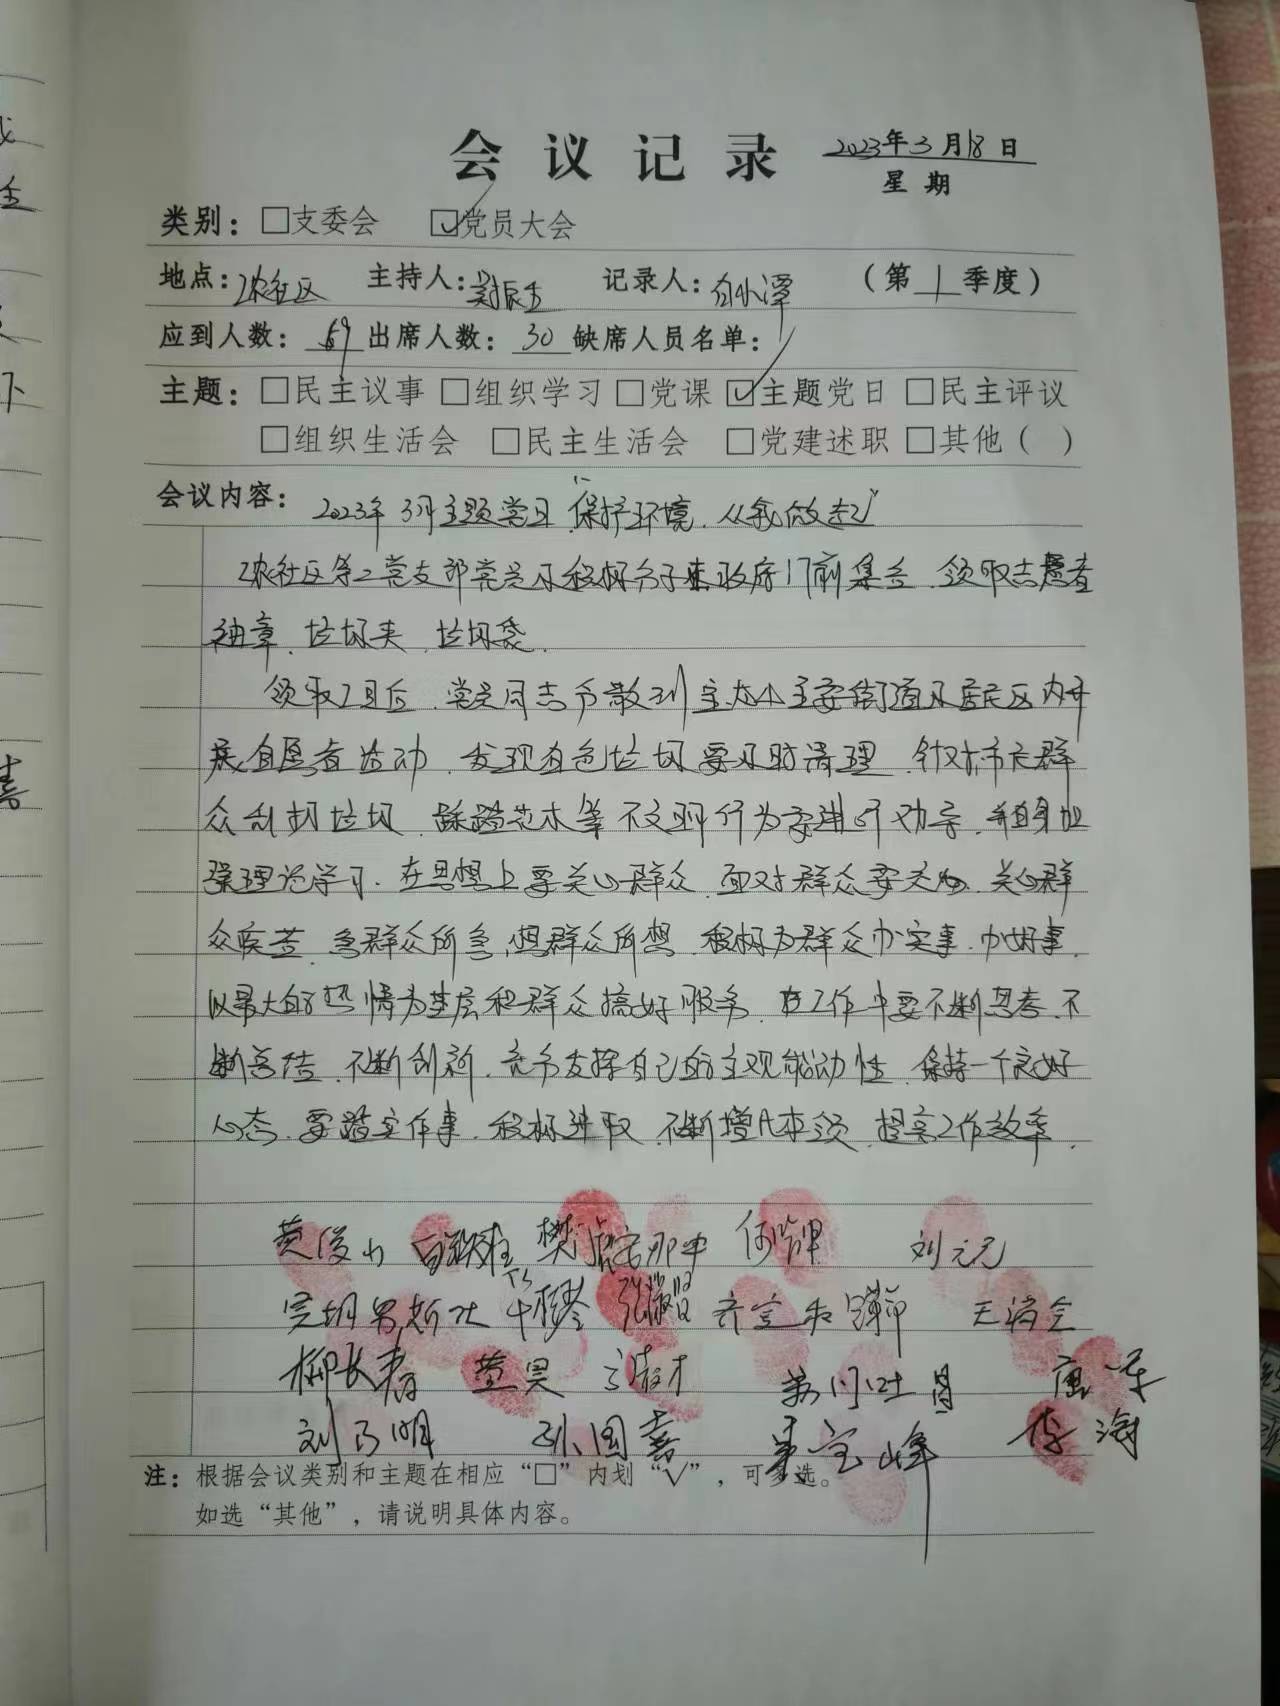 会议记录 2023年3月18日
星期
类别：□支委会 ☑党员大会
地点： 主持人： 记录人： （第1季度）
应到人数：69 出席人数：30 缺席人员名单：
主题：□民主议事 □组织学习 □党课 ☑主题党日 □民主评议
□组织生活会 □民主生活会 □党建述职 □其他（ ）
会议内容：2023年3月主题党日“保护环境、从我做起”
社区第二党支部党员及积极分子来政府门前集合、领取志愿者
袖章、垃圾夹、垃圾袋、
领取工具后、党员同志分散到 主要街道及居民区内开
展自愿者活动、发现白色垃圾要及时清理、针对市民群
众乱扔垃圾、踩踏花木等不文明行为要进行劝导、并自身加
强理论学习、在思想上要关心群众、面对群众要 关心群
众疾苦、急群众所急、想群众所想、积极为群众办实事、办好事、
以最大的热情为基层和群众搞好服务、在工作中要不断思考、不
断总结、不断创新、充分发挥自己的主观能动性、保持一个良好
心态、要踏实作事、积极进取、不断增长本领、提高工作效率、
黄俊 刘元元
齐宝和
柳长春 董昊 唐军
刘乃明 孙国喜 宝峰 李海
注：根据会议类别和主题在相应“□”内划“√”，可多选。
如选“其他”，请说明具体内容。